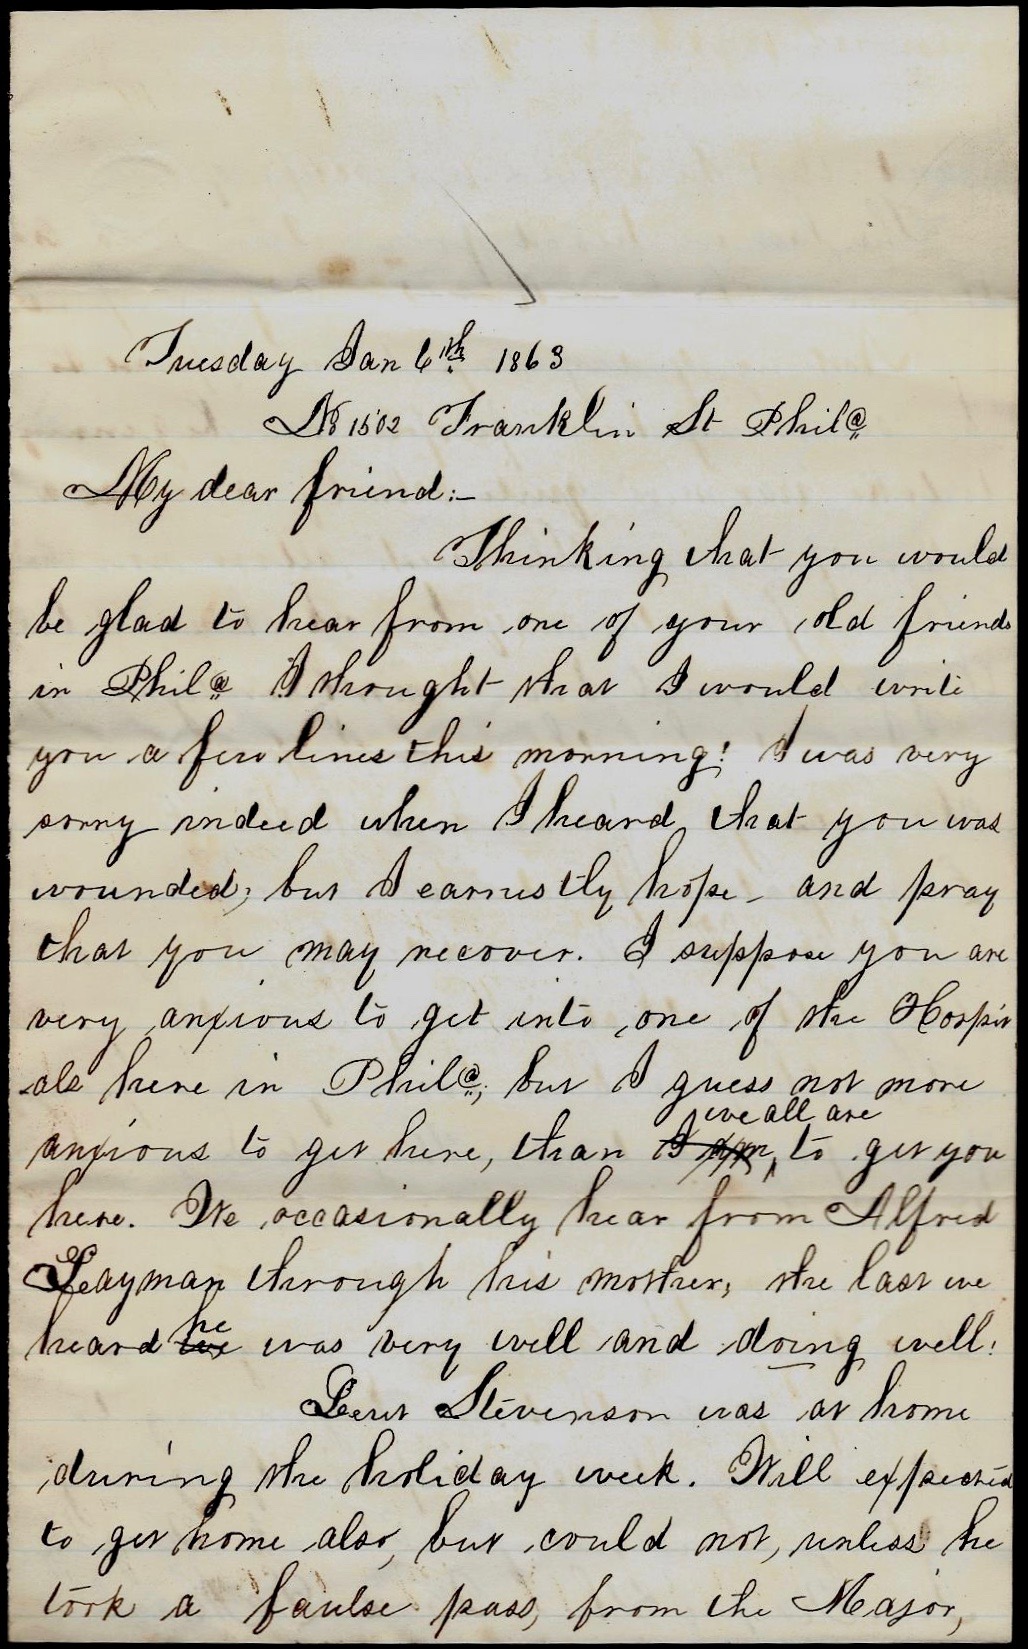 Tuesday Jan 6th 1863
No 1502 Franklin St Phila
My dear friend:—
Thinking that you would
be glad to hear from one of your old friends
in Phila I thought that I would write
you a few lines this morning! I was very
sorry indeed when I heard that you was
wounded; but I earnestly hope - and pray
that you may recover. I suppose you are
very anxious to get into one of the Hospit
-als here in Phila; but I guess not more
we all are
anxious to get here, than I am, to get you
here. We occasionally hear from Alfred
Layman through his mother; the last we
he
heard we was very well and doing well!
Lieut Stevenson was at home
during the holiday week. Will expected
to get home also, but could not, unless he
took a faulse pass, from the Major,